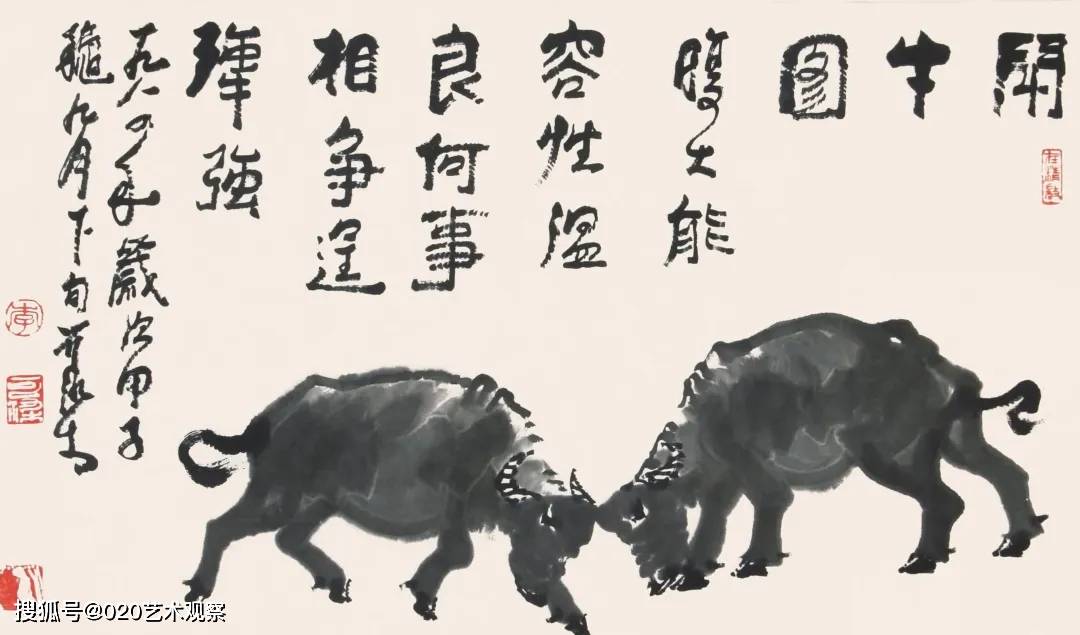 鬥牛圖
腹大能
容性溫
良何事
相爭逞
強
一九八四年歲次甲子
龝九月下旬
搜狐号@020艺术观察